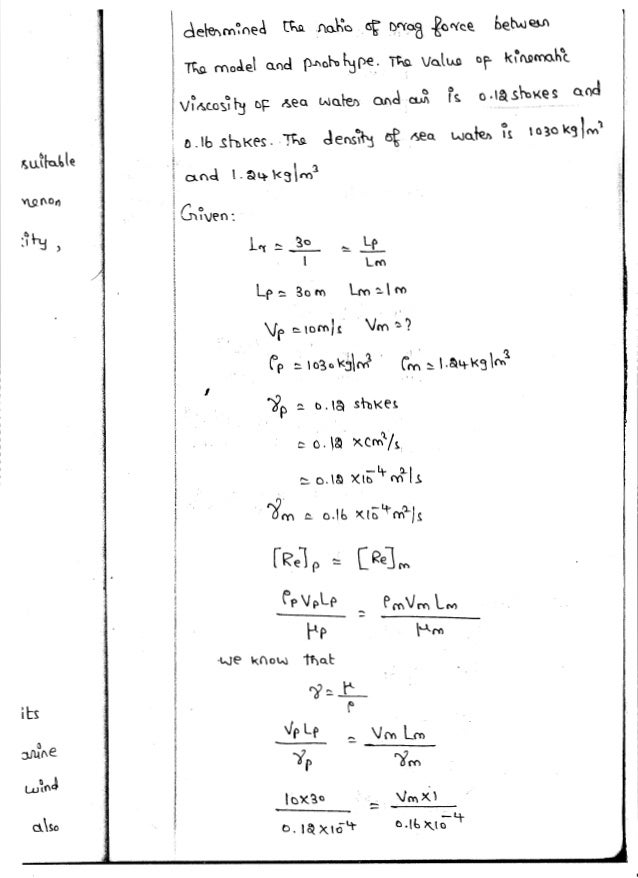 determined the ratio of Drag force between
The model and prototype. The value of kinematic
viscosity of sea water and air is 0.12 stokes and
0.16 stokes. The density of sea water is 1030 kg/m³
suitable
and 1.24 kg/m³
nenon
Given:
ity,
Lr = 30/1 = Lp/Lm
Lp = 30m Lm = 1m
Vp = 10m/s Vm = ?
ρp = 1030kg/m³ ρm = 1.24 kg/m³
γp = 0.12 stokes
= 0.12 × cm²/s
= 0.12 × 10⁻⁴ m²/s
γm = 0.16 × 10⁻⁴ m²/s
[Re]p = [Re]m
ρp Vp Lp / μp = ρm Vm Lm / μm
we know that
γ = μ/ρ
its
Vp Lp / γp = Vm Lm / γm
arine
wind
10×30 / 0.12×10⁻⁴ = Vm×1 / 0.16×10⁻⁴
also